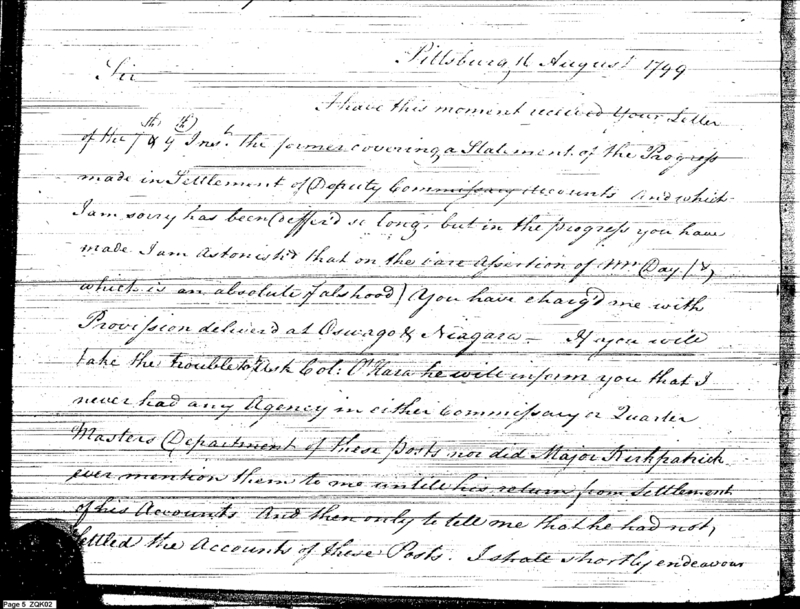 Pittsburg 16 August 1799
Sir
I have this moment received Your Letter
of the 7th & 9th Inst. the former covering a Statement of the Progress
made in Settlement of Deputy Commissary Accounts and which
I am sorry has been deffer'd so long, but in the progress you have
made I am astonish'd that on the bare Assertion of Mr Day (&
which is an absolute falshood) You have charg'd me with
Provission deliver'd at Oswago & Niagara — If you will
take the trouble to Ask Col: O'Hara he will inform you that I
never had any Agency in either Commissary or Quarter
Masters Department of these posts nor did Major Kirkpatrick
ever mention them to me untill his return from Settlement
of his Accounts And then only to tell me that he had not,
settled the Accounts of these Posts. I shall shortly endeavour
Page 5 ZQK02